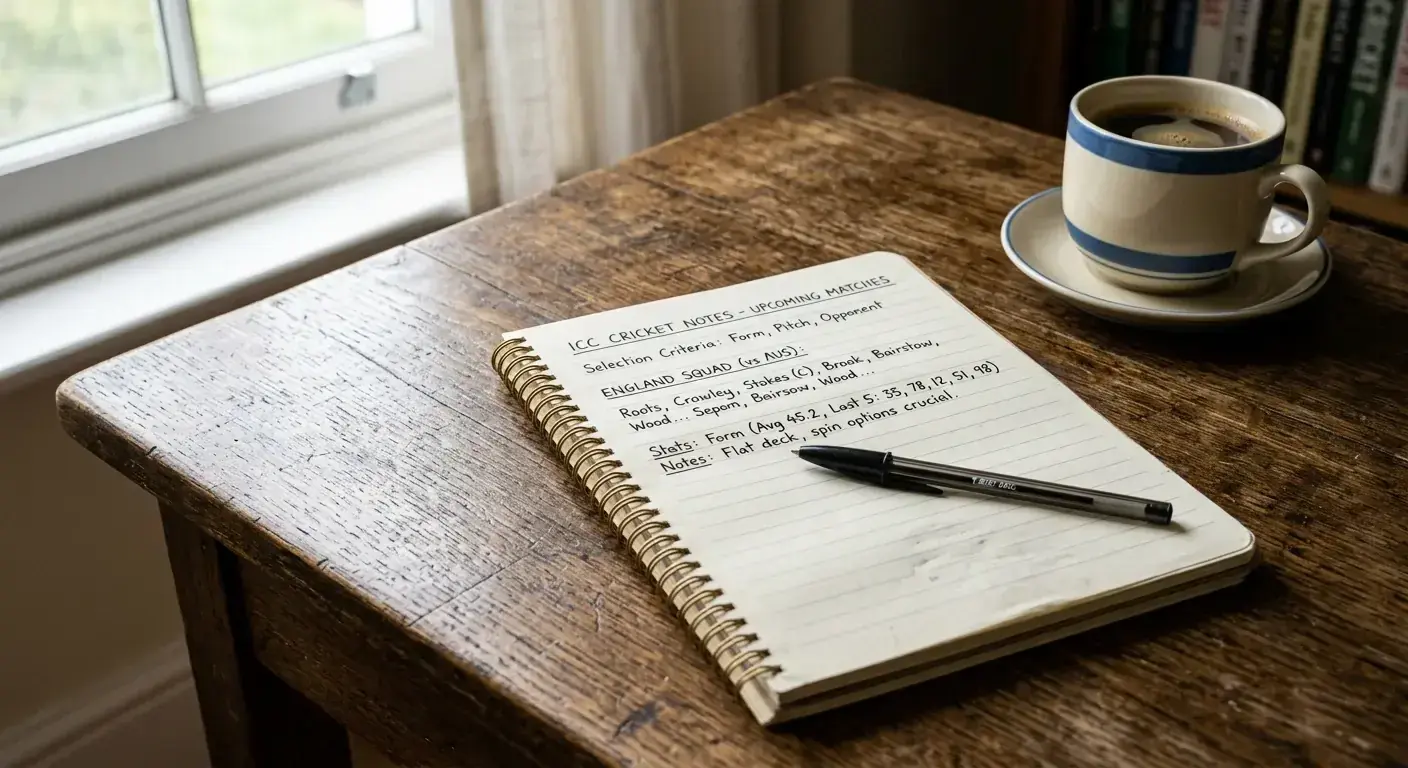 ICC CRICKET NOTES - UPCOMING MATCHES
Selection Criteria: Form, Pitch, Opponent
ENGLAND SQUAD (vs AUS):
Roots, Crawley, Stokes (C), Brook, Bairstow,
Wood... Sepom, Bairsow, Wood...
Stats: Form (Avg 45.2, Last 5: 35, 78, 12, 51, 98)
Notes: Flat deck, spin options crucial.